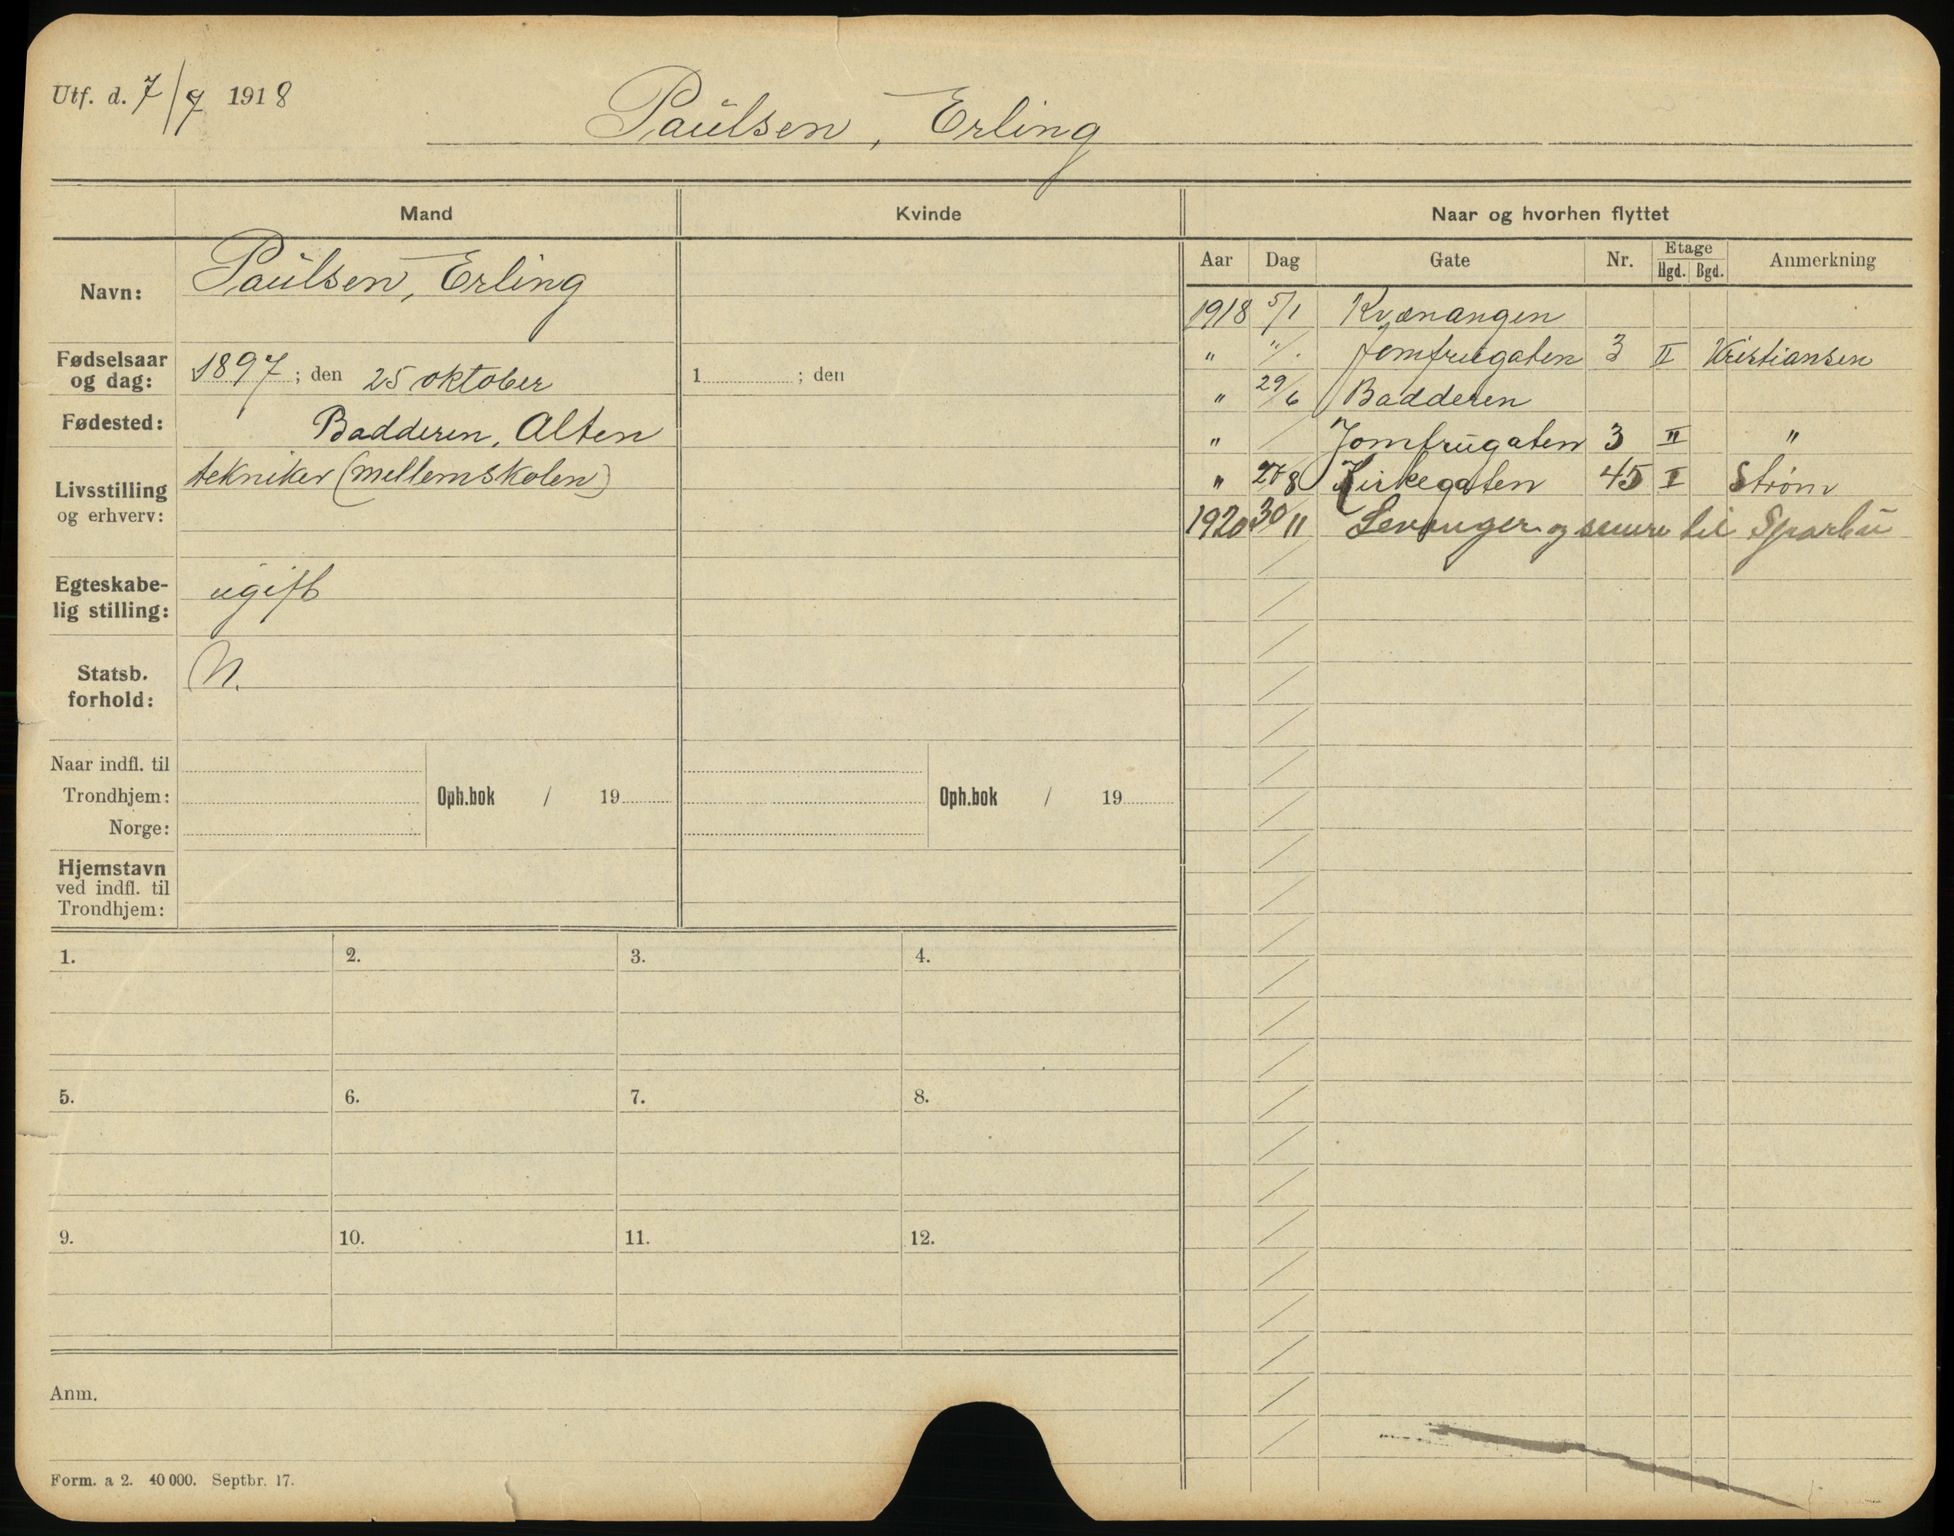 Utf. d. 7/9 1918
Paulsen, Erling
Mand
Kvinde
Naar og hvorhen flyttet
Navn: Paulsen, Erling
Fødselsaar og dag: 1897; den 25 oktober
1 ; den
Fødested: Badderen, Alten
Livsstilling og erhverv: tekniker (mellemskolen)
Egteskabe-
lig stilling: ugift
Statsb.
forhold: N.
Naar indfl. til
Trondhjem: Oph.bok / 19 Oph.bok / 19
Norge:
Hjemstavn
ved indfl. til
Trondhjem:
Aar Dag Gate Nr. Etage Hgd. Bgd. Anmerkning
1918 5/1 Kvænangen
" "/. Jomfrugaten 3 II Kristiansen
" 29/6 Badderen
" / Jomfrugaten 3 II "
" 27/8 Kirkegaten 45 I Strøm
1920 30/11 Levanger og senere til Sparbu
1. 2. 3. 4.
5. 6. 7. 8.
9. 10. 11. 12.
Anm.
Form. a 2. 40 000. Septbr. 17.